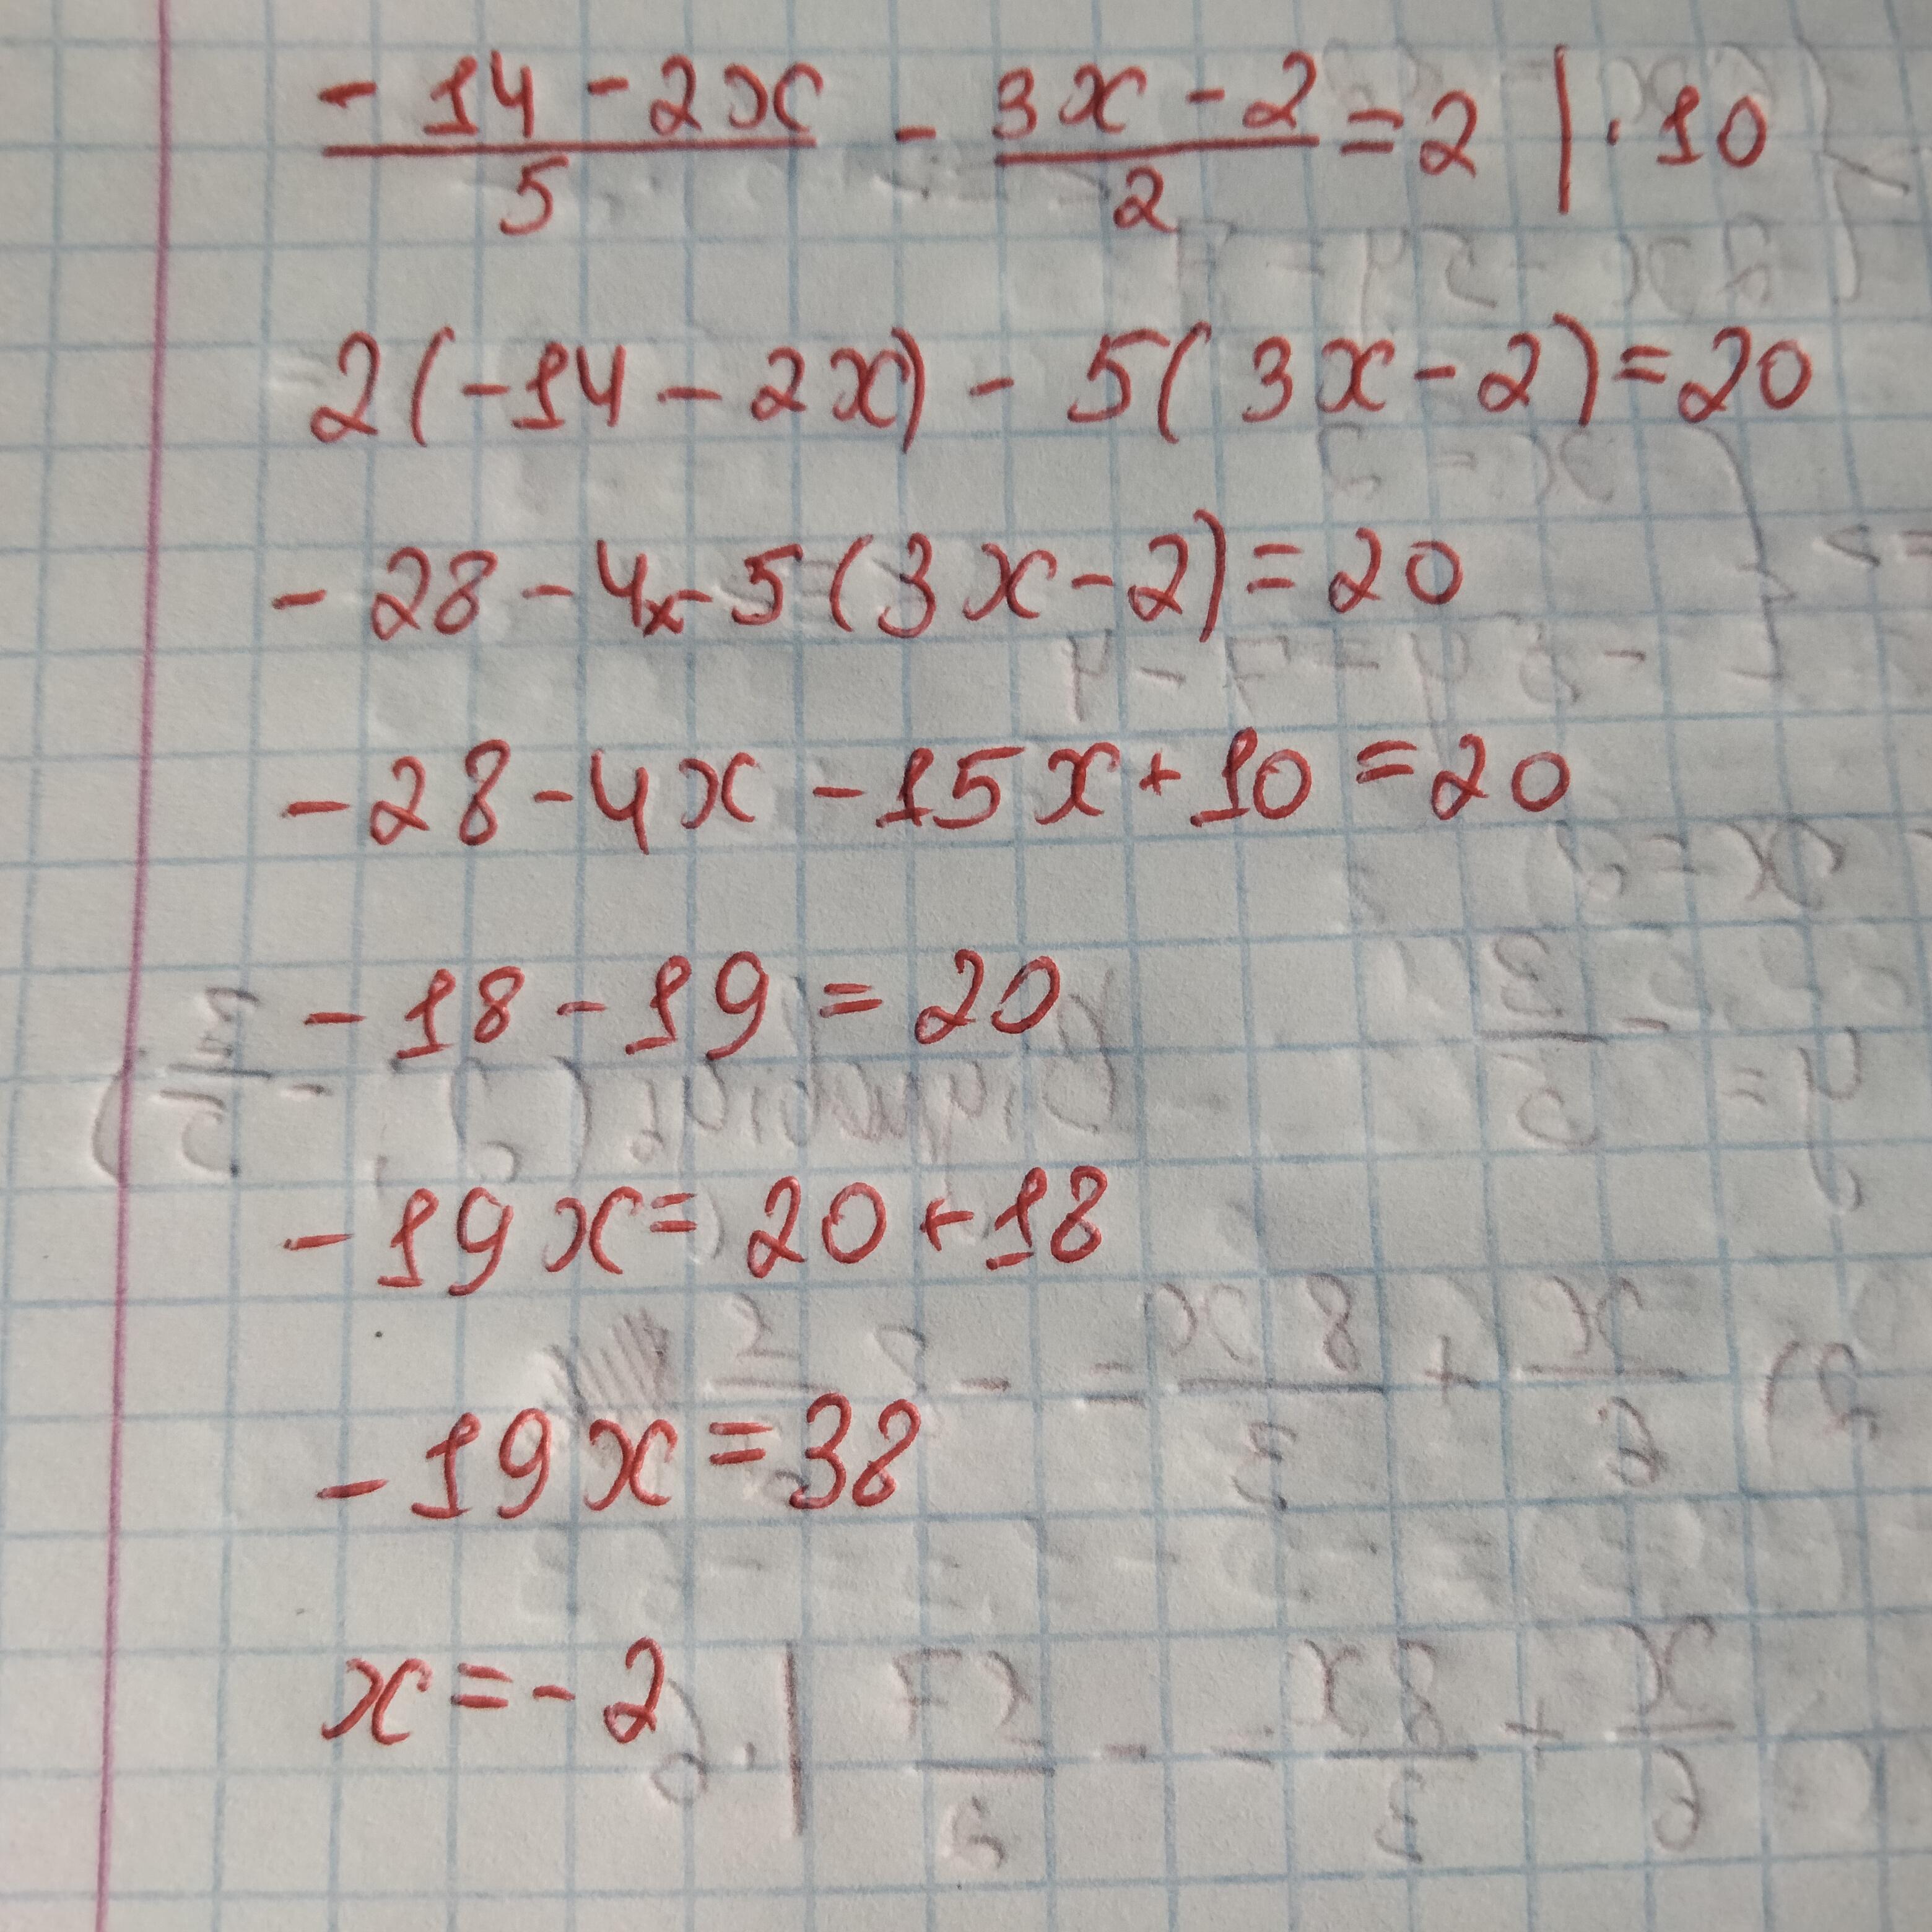 (-14-2x)/5 - (3x-2)/2 = 2 | · 10
2(-14-2x) - 5(3x-2) = 20
-28-4x-5(3x-2) = 20
-28-4x-15x+10 = 20
-18-19 = 20
-19x = 20+18
-19x = 38
x = -2